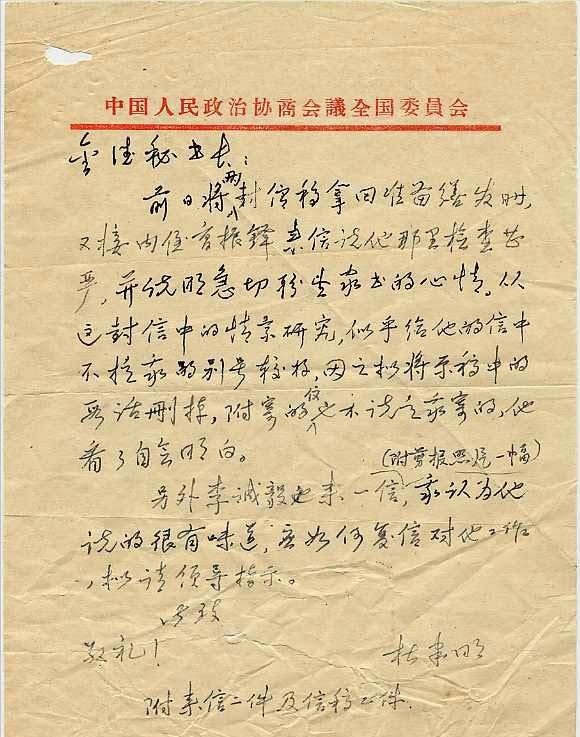 中国人民政治协商会議全国委員会
金城秘书长：
前日将两封信稿拿回准备缮发时，
又接内侄 振铎来信说他那里检查甚
严，并说明急切盼望家书的心情。从
这封信中的情景研究，似乎给他的信中
不提我的别号较好，因之拟将原稿中的
要话删掉，附寄的信也未说是我寄的，他
看了自会明白。
另外李诚毅也来一信，我认为他（附剪报照片一幅）
说的很有味道，应如何复信对他工作
，拟请领导指示。
此致
敬礼！
杜聿明
附来信二件及信稿二件.